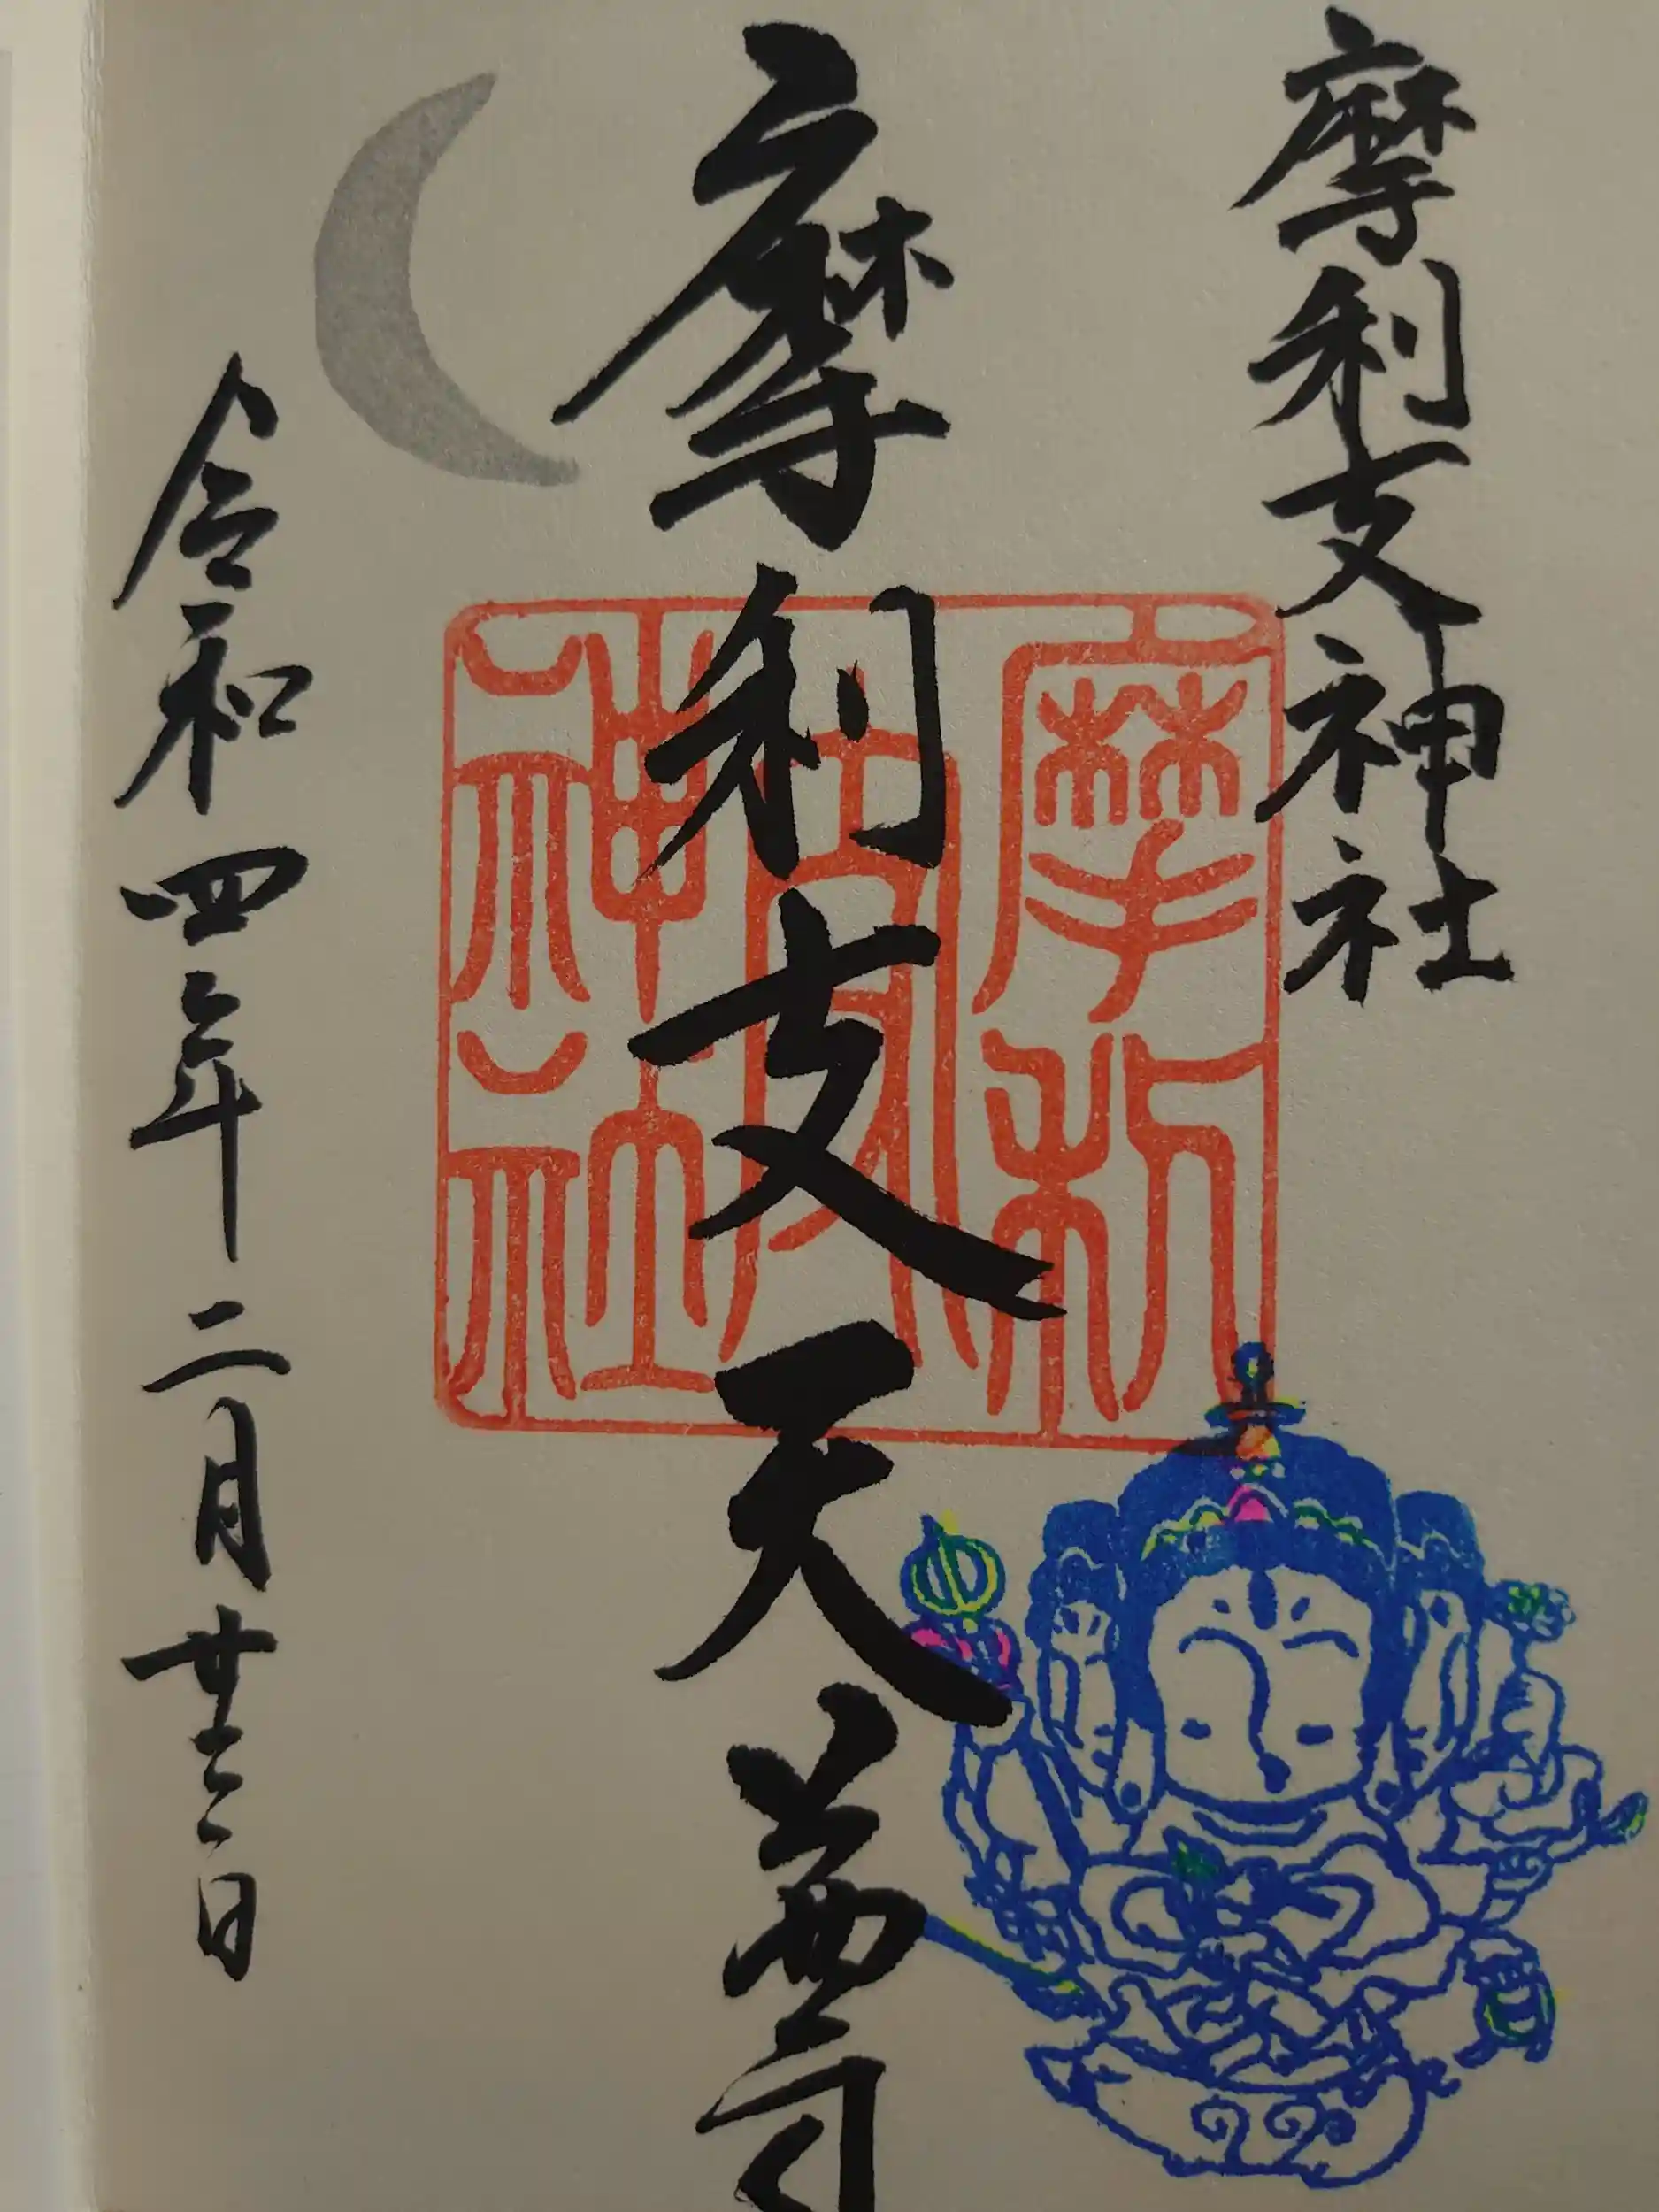 摩利支神社
摩利支天尊
令和四年二月廿三日
摩利
神社